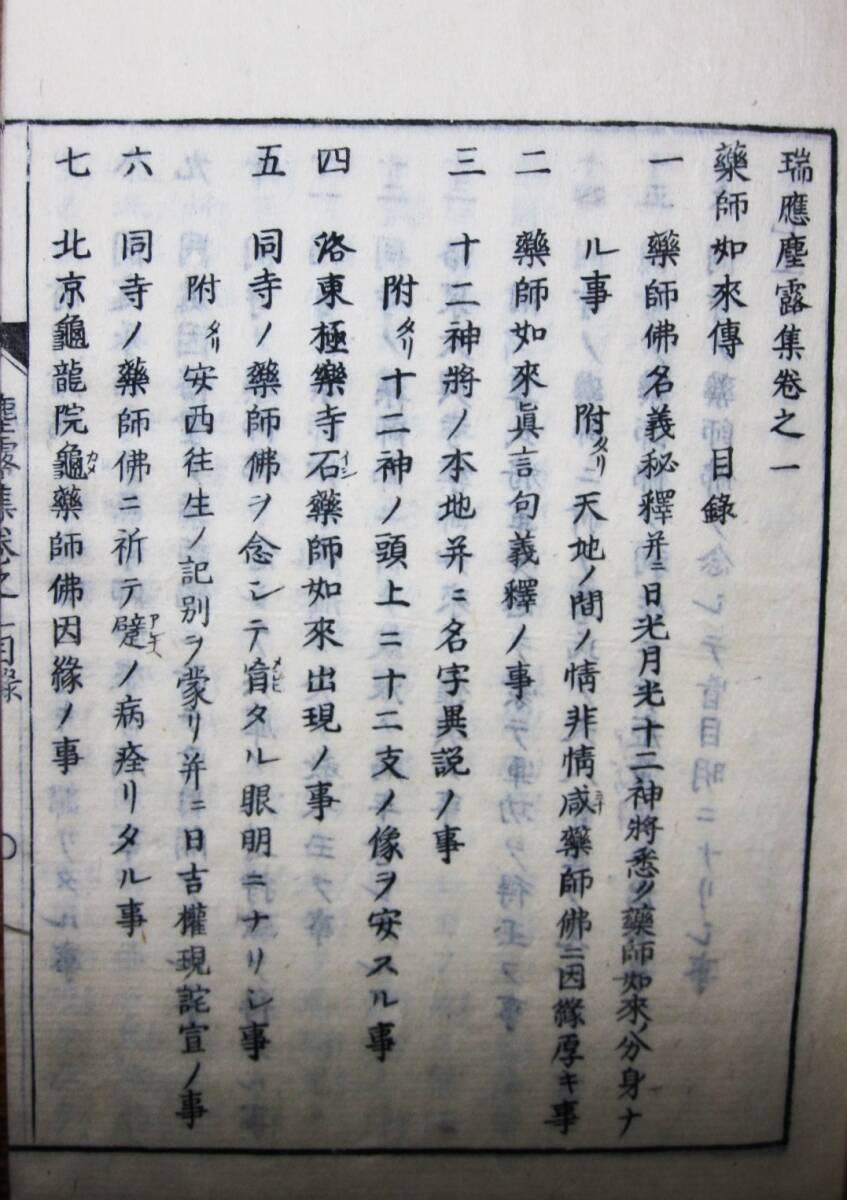 瑞應塵露集卷之一
藥師如來傳 目錄
一 藥師佛名義秘釋并ニ日光月光十二神將悉ク藥師如來ノ分身ナ
ル事 附タリ天地ノ間ノ情非情咸ミナ藥師佛ニ因緣厚キ事
二 藥師如來眞言句義釋ノ事
三 十二神將ノ本地并ニ名字異説ノ事
附タリ十二神ノ頭上ニ十二支ノ像ヲ安スル事
四 洛東極樂寺石イシ藥師如來出現ノ事
五 同寺ノ藥師佛ヲ念シテ盲メシヒタル眼明ニナリシ事
附タリ安西往生ノ記別ヲ蒙リ并ニ日吉權現詫宣ノ事
六 同寺ノ藥師佛ニ祈テ躄ノ病痊リタル事
七 北京龜龍院龜カメ藥師佛因緣ノ事
塵露集卷之一目錄